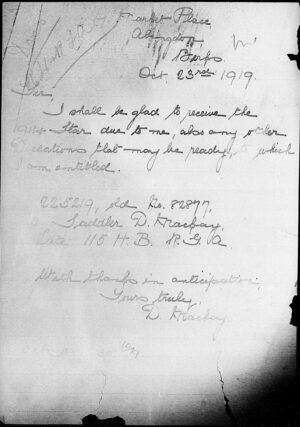 Market Place,
Abingdon,
Berks
Oct 23rd 1919.
Sir,
I shall be glad to receive the
1914 Star due to me, also any other
Decorations that may be ready, to which
I am entitled.
225219, old No. 82877,
Saddler D. Mackay,
Late 115 H. B. R. G. A.
With thanks in anticipation,
Yours truly,
D. Mackay.